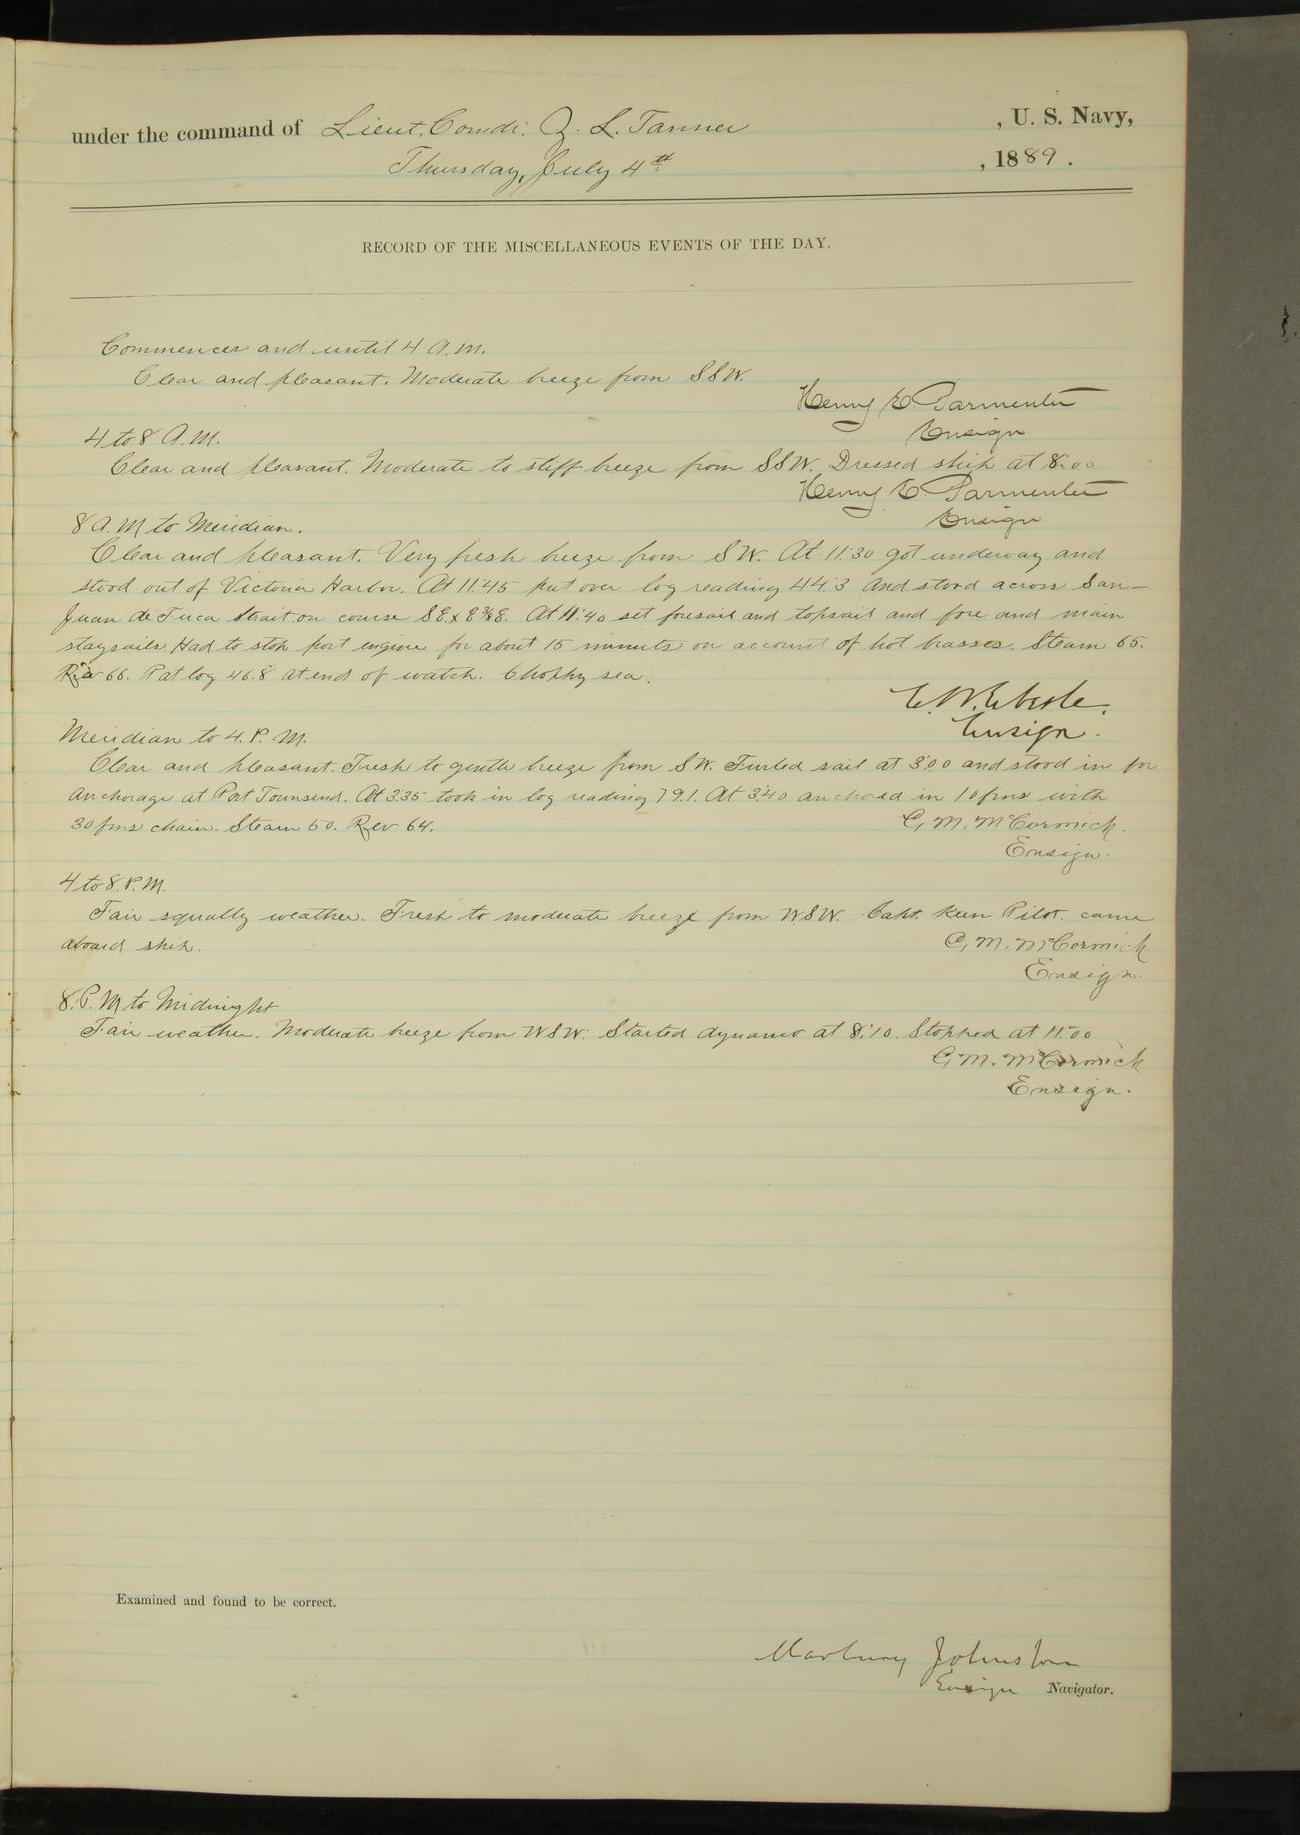 under the command of Lieut. Comdr. Z. L. Tanner , U. S. Navy,
Thursday, July 4th , 1889.
RECORD OF THE MISCELLANEOUS EVENTS OF THE DAY.
Commences and until 4 A.M.
Clear and pleasant. Moderate breeze from SSW.
Henry E. Parmenter
Ensign
4 to 8 A.M.
Clear and pleasant. Moderate to stiff breeze from SSW. Dressed ship at 8:00
Henry E. Parmenter
Ensign
8 A.M to Meridian.
Clear and pleasant. Very fresh breeze from SW. At 11:30 got underway and
stood out of Victoria Harbor. At 11:45 put over log reading 44.3 and stood across San-
Juan de Fuca Strait on course SE x E 3/8 E. At 11:40 set foresail and topsail and fore and main
staysails. Had to stop port engine for about 15 minutes on account of hot brasses. Steam 65.
Rev 66. Pat log 46.8 at end of watch. Choppy sea.
E. W. Eberle.
Ensign.
Meridian to 4. P. M.
Clear and pleasant. Fresh to gentle breeze from SW. Furled sail at 3:00 and stood in for
anchorage at Port Townsend. At 3:35 took in log reading 79.1. At 3:40 anchored in 10 fms with
30 fms chain. Steam 50. Rev 64.
C, M. McCormick.
Ensign.
4 to 8. P.M.
Fair squally weather. Fresh to moderate breeze from WSW. Capt. Keen Pilot. came
aboard ship.
C, M. McCormick
Ensign.
8. P. M to Midnight
Fair weather. Moderate breeze from WSW. Started dynamo at 8:10. Stopped at 11:00
C, M. McCormick
Ensign.
Examined and found to be correct.
Marbury Johnston
Ensign Navigator.